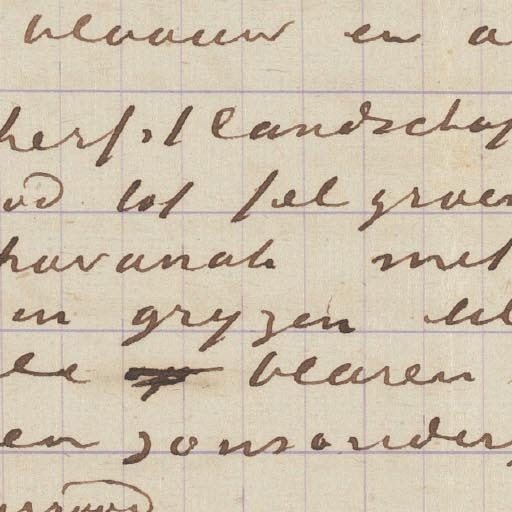 blaauw en a
herfstlandschap
od tot fel groen
havanah met
en gryzen
blaren
en zonsonder